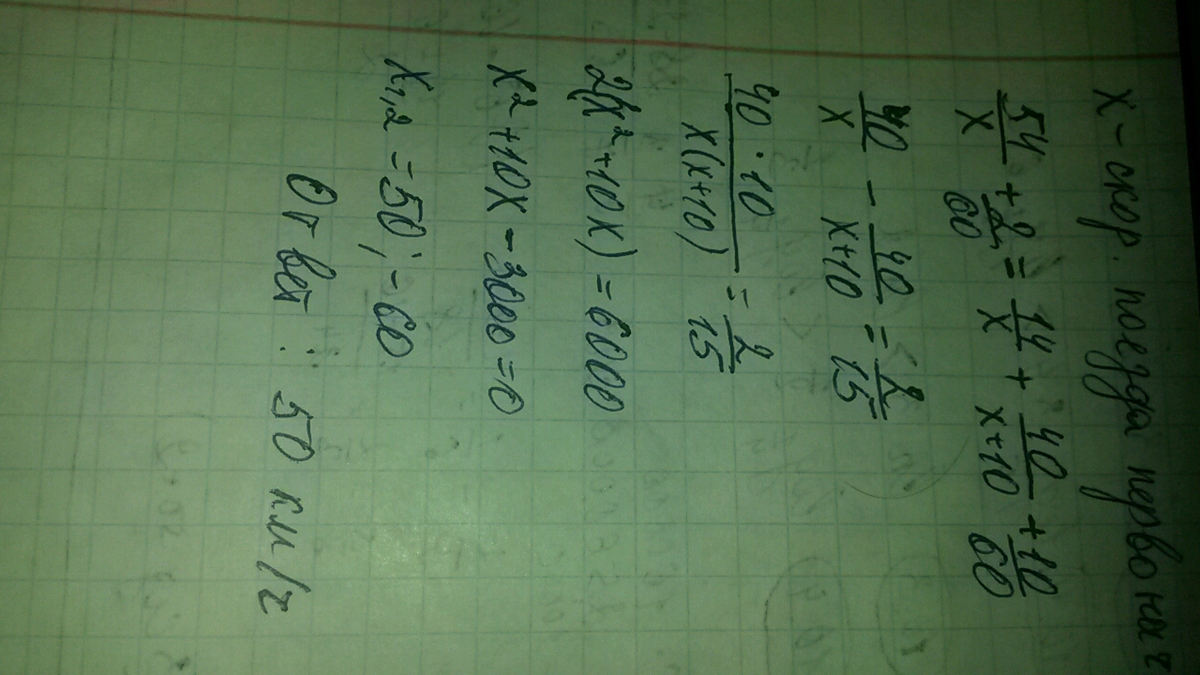 x - скор. поезда первонач
54/x + 2/60 = 14/x + 40/(x+10) + 10/60
40/x - 40/(x+10) = 2/15
40·10/(x(x+10)) = 2/15
2(x²+10x) = 6000
x²+10x-3000=0
x₁,₂ = 50; -60
Ответ: 50 км/ч